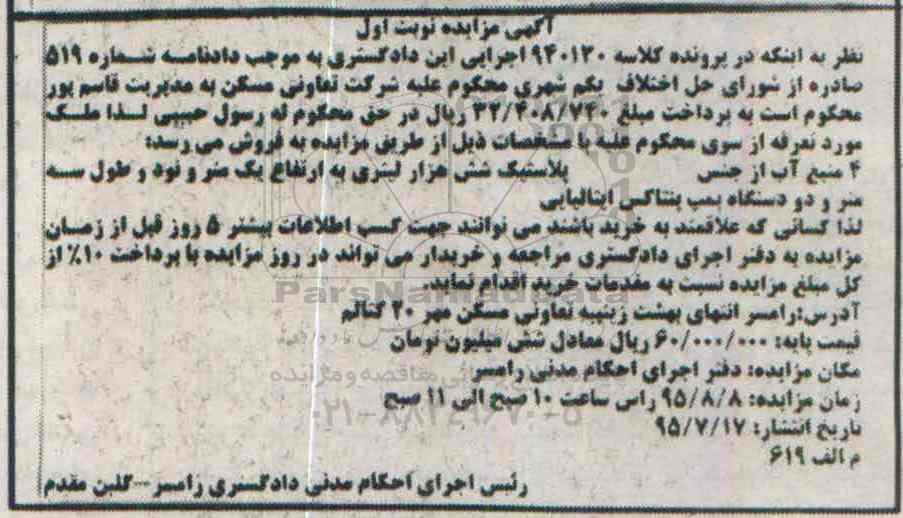 آگهی مزایده نوبت اول
نظر به اینکه در پرونده کلاسه ۹۴۰۱۳۰ اجرایی این دادگستری به موجب دادنامه شماره ۵۱۹
صادره از شورای حل اختلاف یکم شهری محکوم علیه شرکت تعاونی مسکن به مدیریت قاسم پور
محکوم است به پرداخت مبلغ ۳۲/۴۰۸/۷۲۰ ریال در حق محکوم له رسول حبیبی لذا ملک
مورد تعرفه از سوی محکوم علیه با مشخصات ذیل از طریق مزایده به فروش می رسد:
۴ منبع آب از جنس پلاستیک شش هزار لیتری به ارتفاع یک متر و نود و طول سه
متر و دو دستگاه پمپ پنتاکس ایتالیایی
لذا کسانی که علاقمند به خرید باشند می توانند جهت کسب اطلاعات بیشتر ۵ روز قبل از زمان
مزایده به دفتر اجرای دادگستری مراجعه و خریدار می تواند در روز مزایده با پرداخت ۱۰٪ از
کل مبلغ مزایده نسبت به مقدمات خرید اقدام نماید.
ParsNamadData
آدرس:رامسر انتهای بهشت زینبیه تعاونی مسکن مهر ۲۰ کتالم
قیمت پایه: ۶۰/۰۰۰/۰۰۰ ریال معادل شش میلیون تومان
مکان مزایده: دفتر اجرای احکام مدنی رامسر
زمان مزایده: ۹۵/۸/۸ راس ساعت ۱۰ صبح الی ۱۱ صبح
۰۲۱-۸۸۳۴۹۶۷۰-۵
تاریخ انتشار: ۹۵/۷/۱۷
م الف ۶۱۹
رئیس اجرای احکام مدنی دادگستری رامسر--گلین مقدم